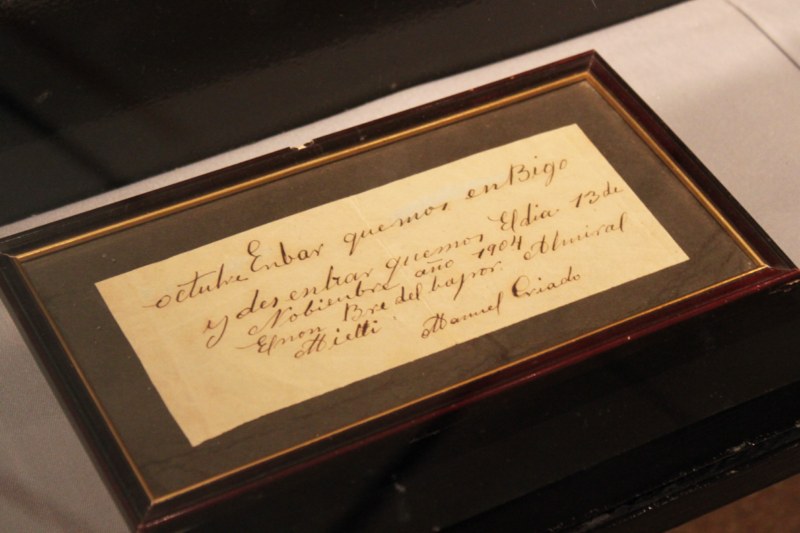 Enbar quemos en Bigo
octubre
y des entrar quemos El dia 13 de
Nobiembre año 1904
El non Bre del bapor. Almiral
Mielli. Manuel Criado